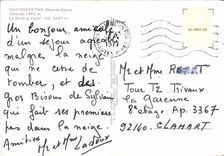 MONTGENEVRE (Hautes-Alpes)
Altitude 1860 m.
Un bonjour amical
d'un séjour agréable
malgré la neige
qui ne cesse de
tomber, et des
Gros Bisous de Sylvain
qui fait ses premiers
pas dans la neige.
Amitiés Mr et Mme Ladoux
Mr et Mme
Tour T2 Trivaux
la Garenne
8e étage Ap. 3367
92140. CLAMART